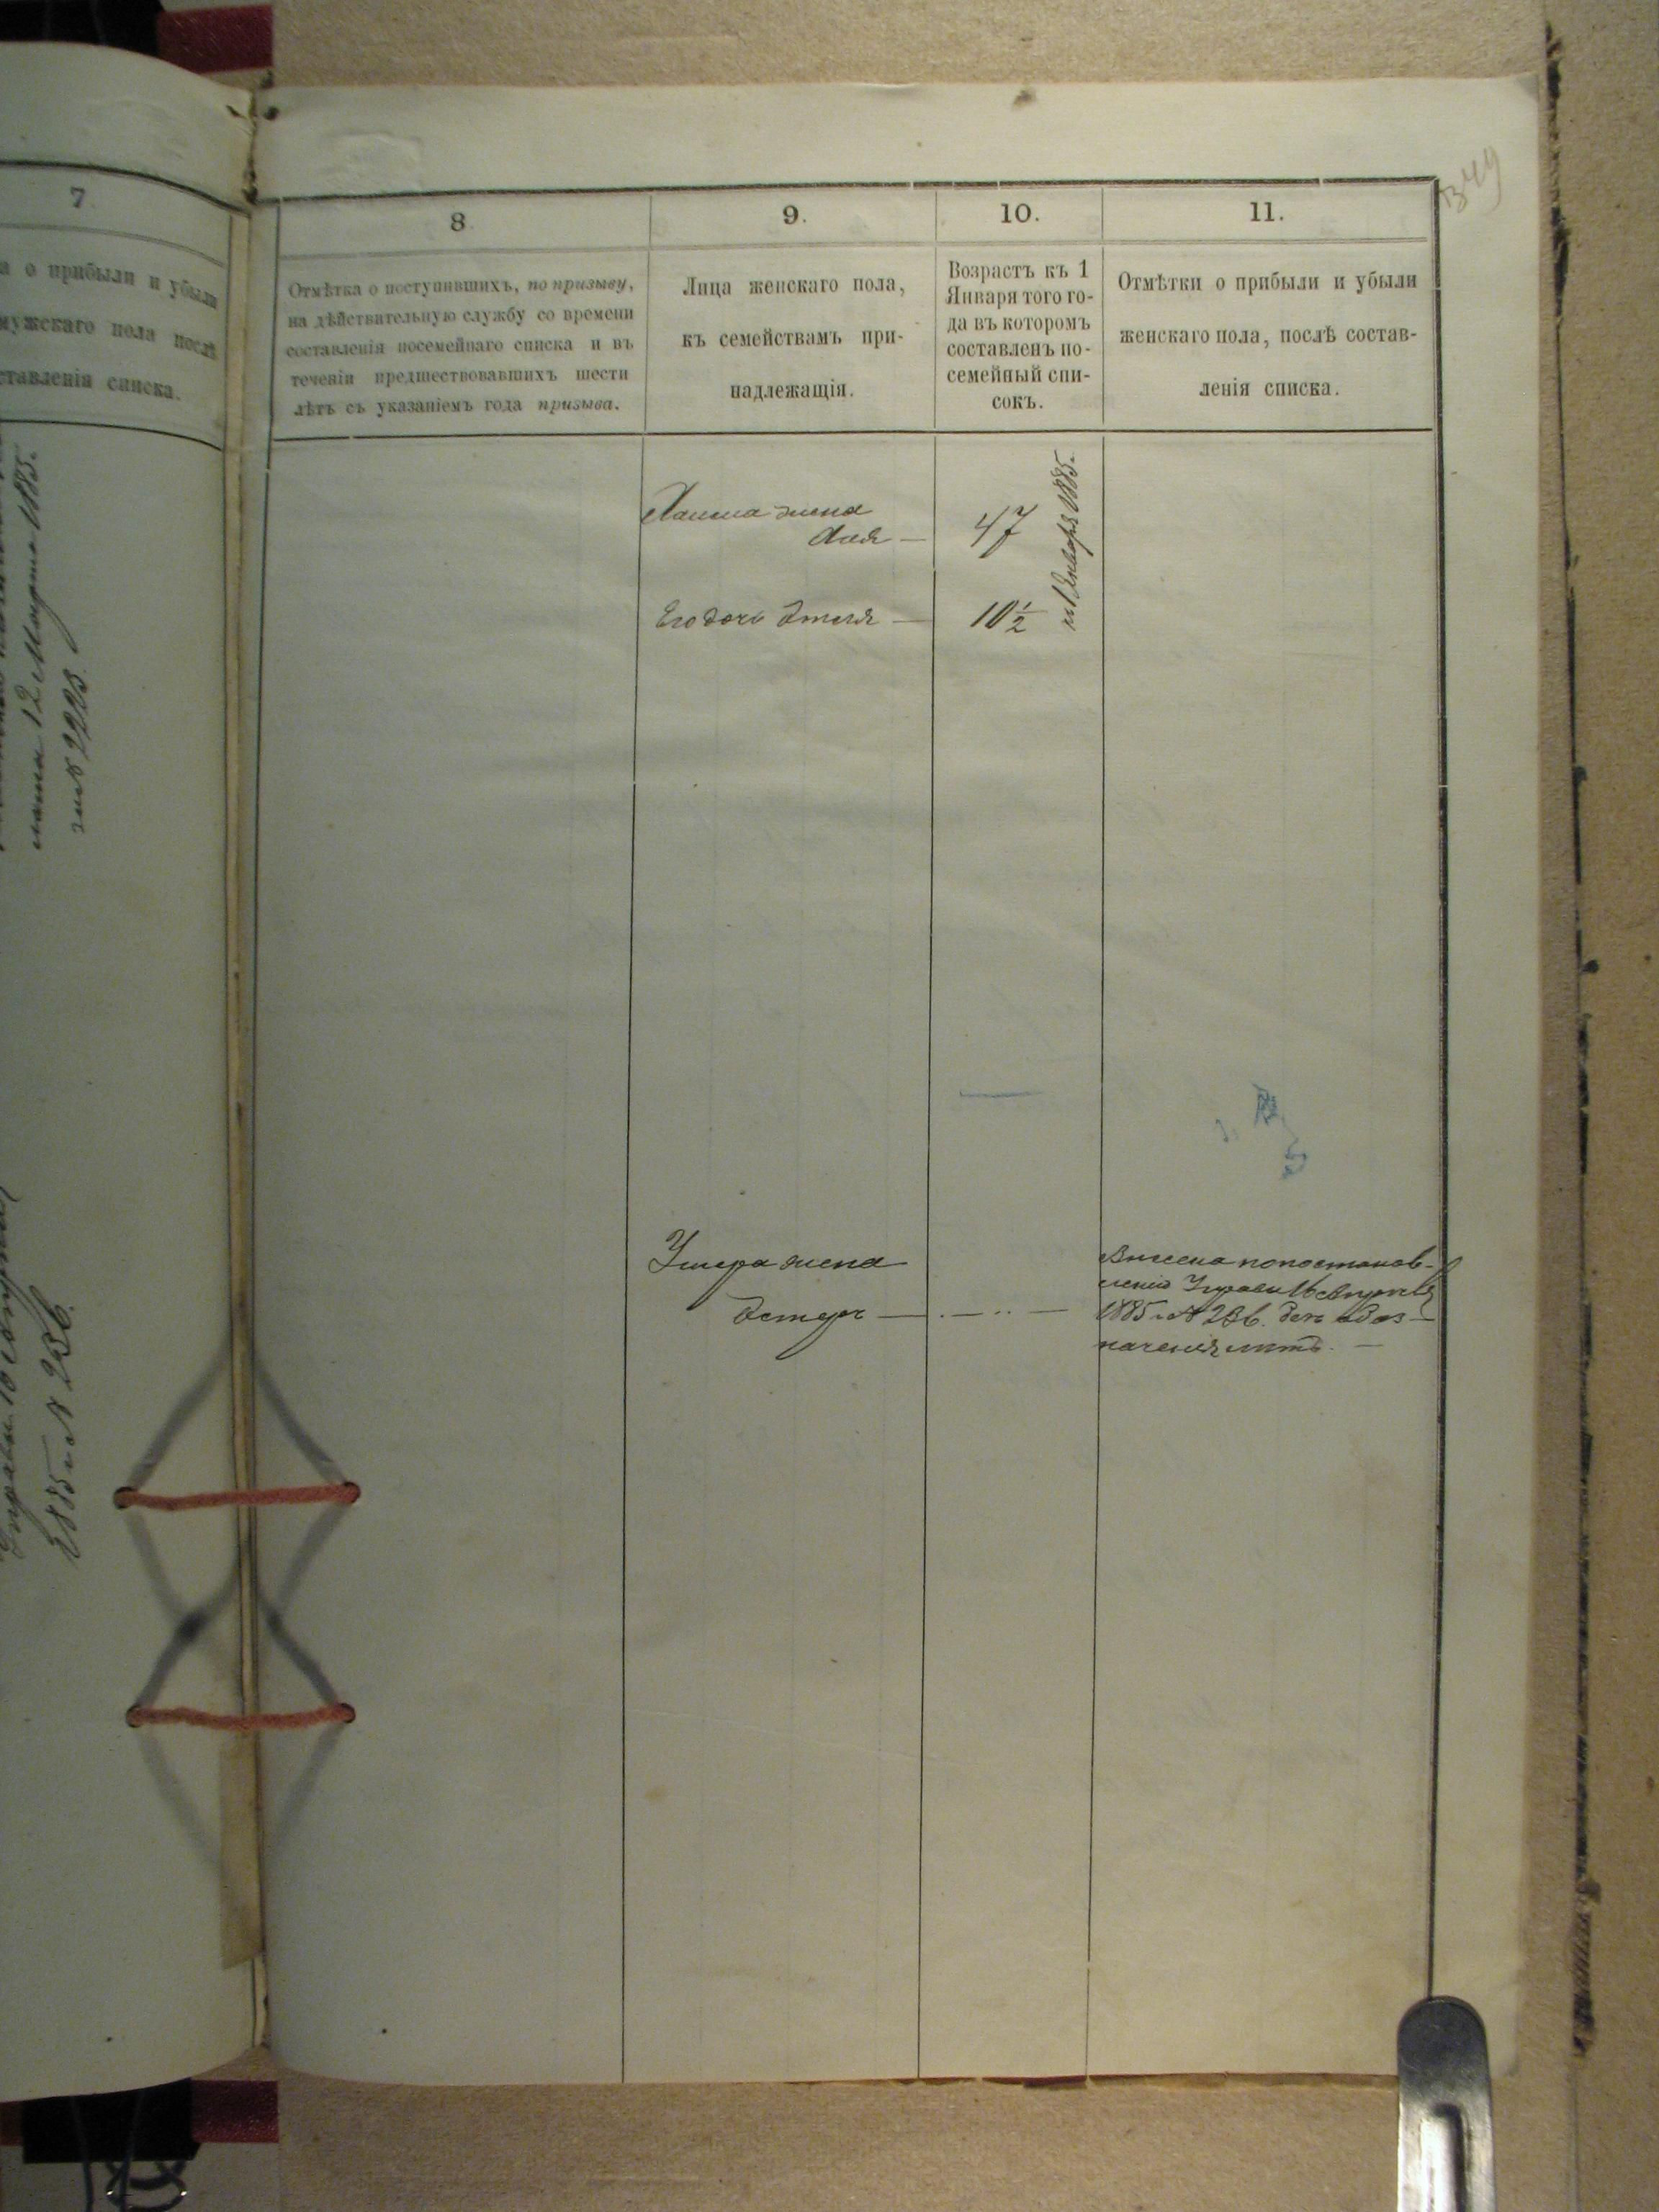 349
7
о прибыли и убыли
мужскаго пола послѣ
ставленія списка.
12 Марта 1885.
№ 2223.
1885 г. № 236.
8
Отмѣтка о поступившихъ, по призыву,
на дѣйствительную службу со времени
составленія посемейнаго списка и въ
теченіи предшествовавшихъ шести
лѣтъ съ указаніемъ года призыва.
9.
Лица женскаго пола,
къ семействамъ при-
надлежащія.
10.
Возрастъ къ 1
Января того го-
да въ которомъ
составленъ по-
семейный спи-
сокъ.
11.
Отмѣтки о прибыли и убыли
женскаго пола, послѣ состав-
ленія списка.
жена
— 47
Января 1885.
Его дочь Этля — 10 1/2
жена
Эстеръ —
по постанов-
ленію Управы 16
1885 г. № 236. безъ обоз-
наченія лѣтъ. —